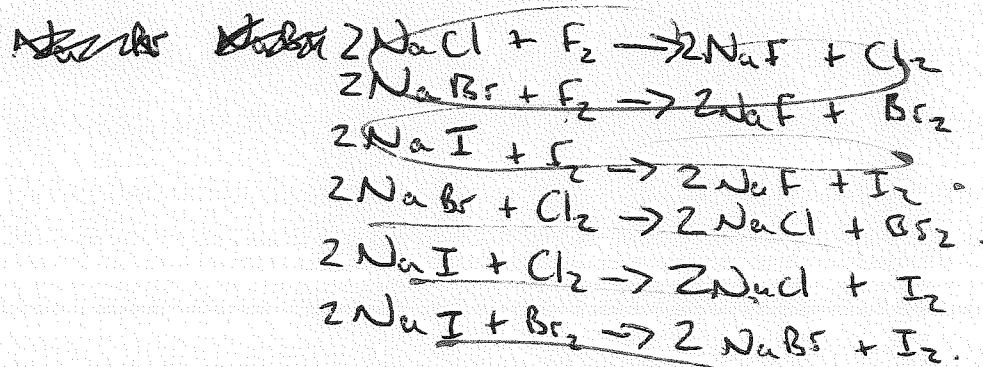 2NaCl + F₂ → 2NaF + Cl₂
2NaBr + F₂ → 2NaF + Br₂
2NaI + F₂ → 2NaF + I₂.
2NaBr + Cl₂ → 2NaCl + Br₂.
2NaI + Cl₂ → 2NaCl + I₂
2NaI + Br₂ → 2NaBr + I₂.